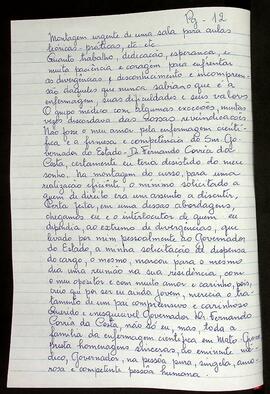 Pg - 12
Montagem urgente de uma sala para aulas
teóricas - práticas, etc etc
Quanto trabalho, dedicação, esperança, e
muita paciência e coragem para enfrentar
as divergências, e desconhecimento e incompreen-
são daqueles que nunca sabiam o que é a
enfermagem, suas dificuldades e seus valores
O grupo médico com algumas exceções, muitas
vezes discordava das nossas reivindicações
Não fosse o meu amor pela enfermagem cientí-
fica e a firmeza e competência do Snr. Go-
vernador do Estado - Dr. Fernando Corrêa da
Costa, certamente eu teria desistido do meu
sonho. Na montagem do curso, para uma
realização eficiente, o mínimo solicitado a
quem de direito era um assunto a discutir.
Certa feita, em uma dessas abordagens,
chegamos eu e o interlocutor de quem eu
dependia, ao extremo de divergências, que
levado por mim pessoalmente ao Governador
do Estado a minha solicitação de dispensa
do cargo, o mesmo, marcou para o mesmo
dia uma reunião na sua residência, com
o meu opositor e com muito amor e carinho, pois,
viu que por ser eu ainda jovem, merecia o tra-
tamento de um pai compreensivo e carinhoso
Querido e inesquecível Governador Dr. Fernando
Corrêa da Costa, não só eu, mas, toda a
família da enfermagem científica em Mato-Grosso
presta homenagens sinceras, ao eminente mé-
dico, Governador, na pessoa pura, singela, amo-
rosa e competente pessoa humana.